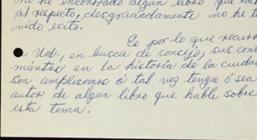 no he encontrado algun libro que
al respecto, desgraciadamente no he te
nido exito.
Es por lo que recurro
a Ud., en busca de consejo, sus cono
mientos en la historia de la ciudad
son amplicimos ó tal vez tenga ó sea
autor de algun libro que hable sobre
esta tema.